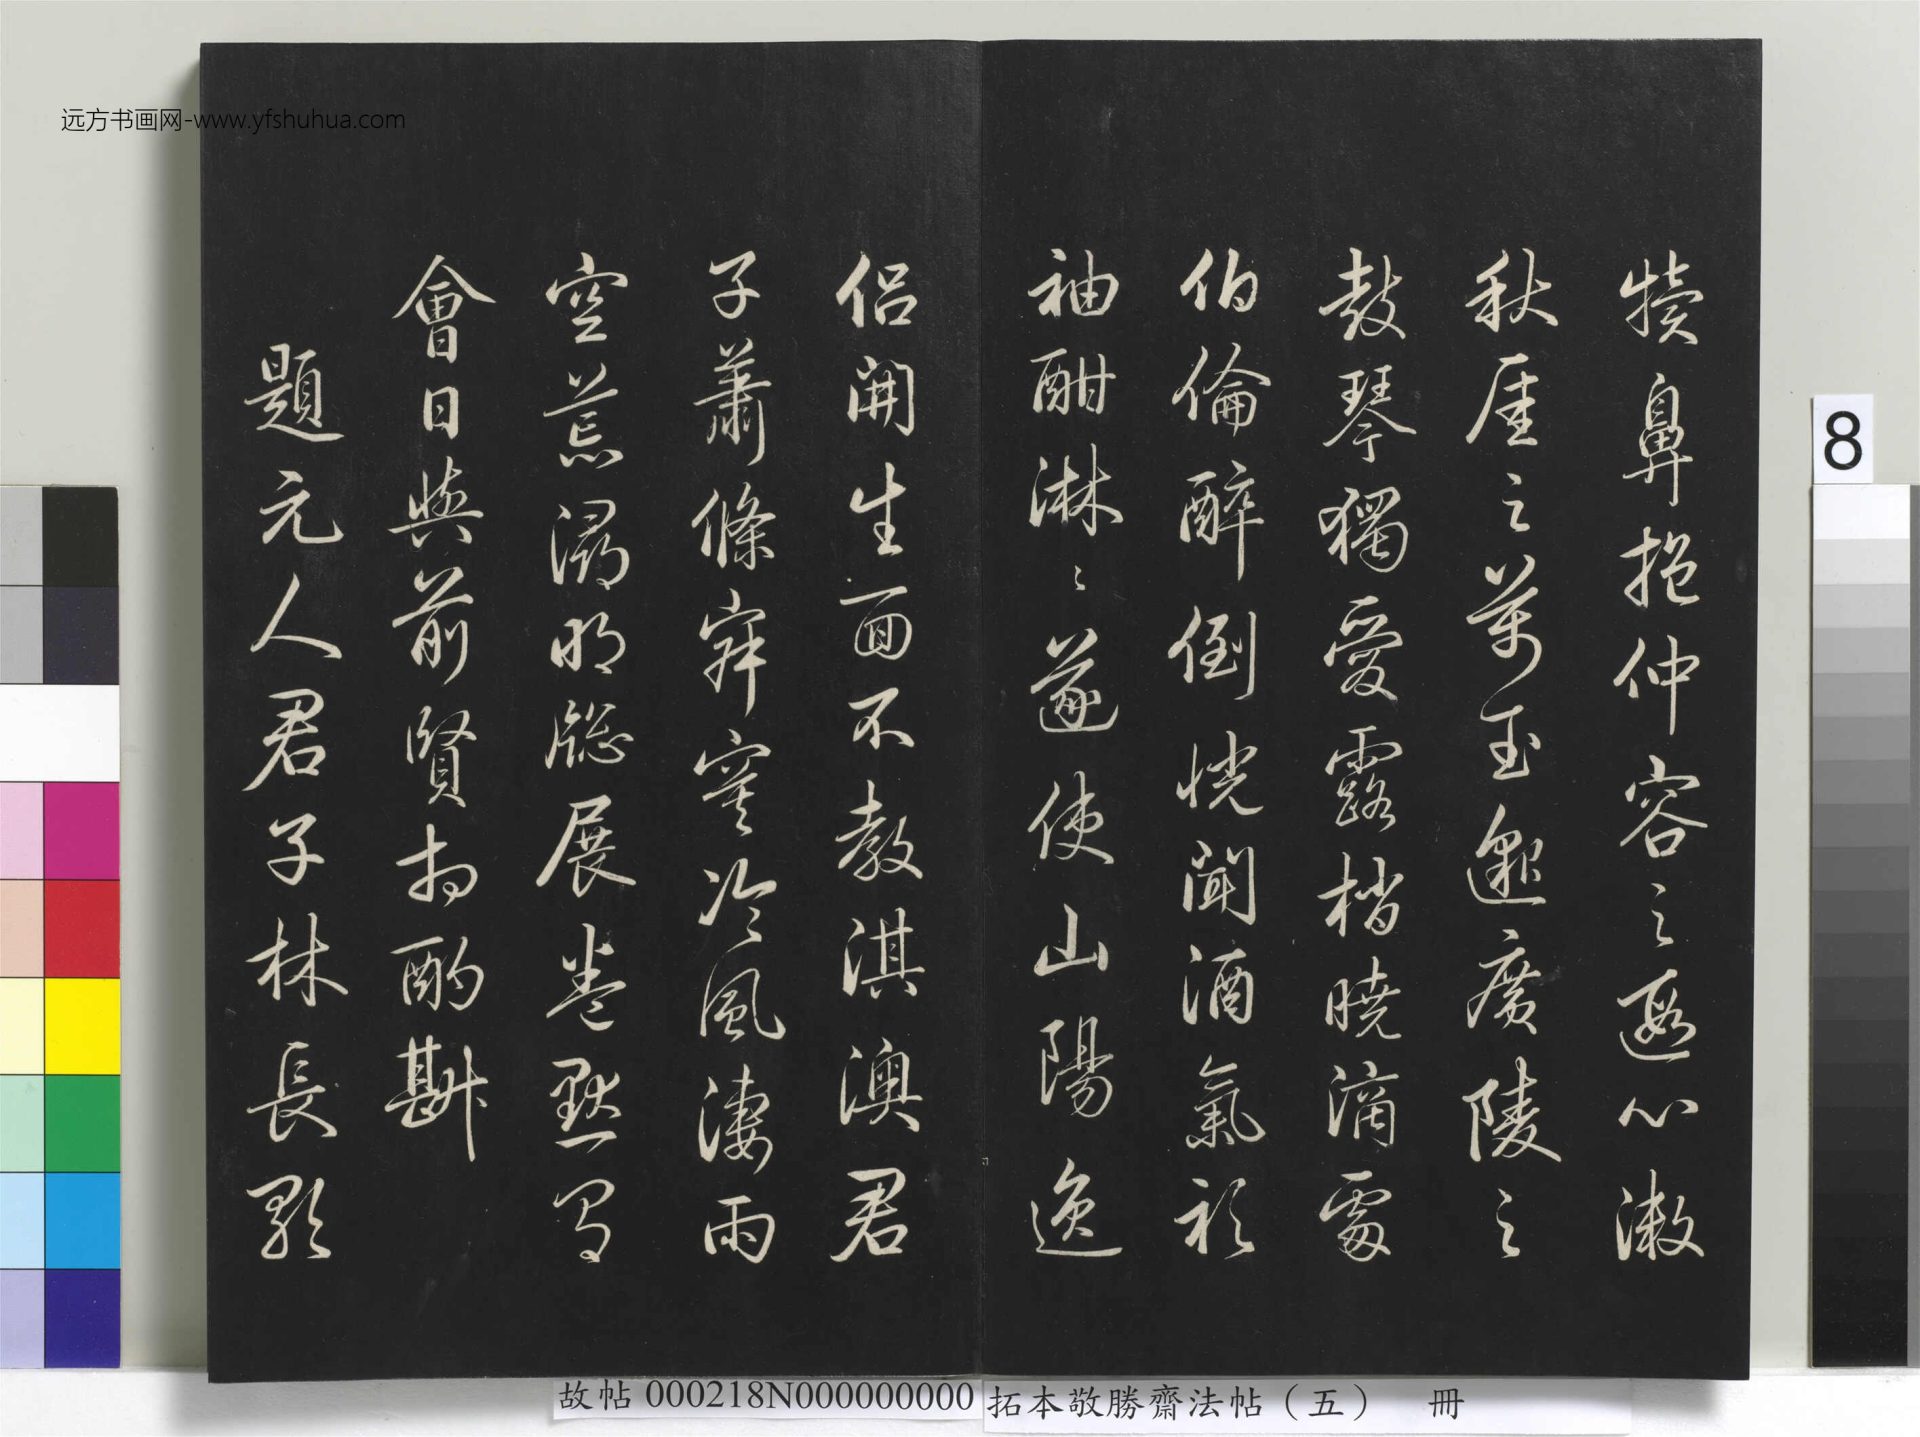 远方书画网-www.yfshuhua.com
犢鼻抱仲容之遐心漱
秋厓之萬玉邈廣陵之
鼓琴獨愛露梢曉滴處
伯倫醉倒恍聞酒氣衫
袖酣淋〻遂使山陽逸
侣開生面不教淇澳君
子蕭條寂寞冷風淒雨
空荒潯明牎展卷默
會日與前賢相酌斟
題元人君子林長歌
8
故帖 000218N000000000 拓本敬勝齋法帖（五） 冊